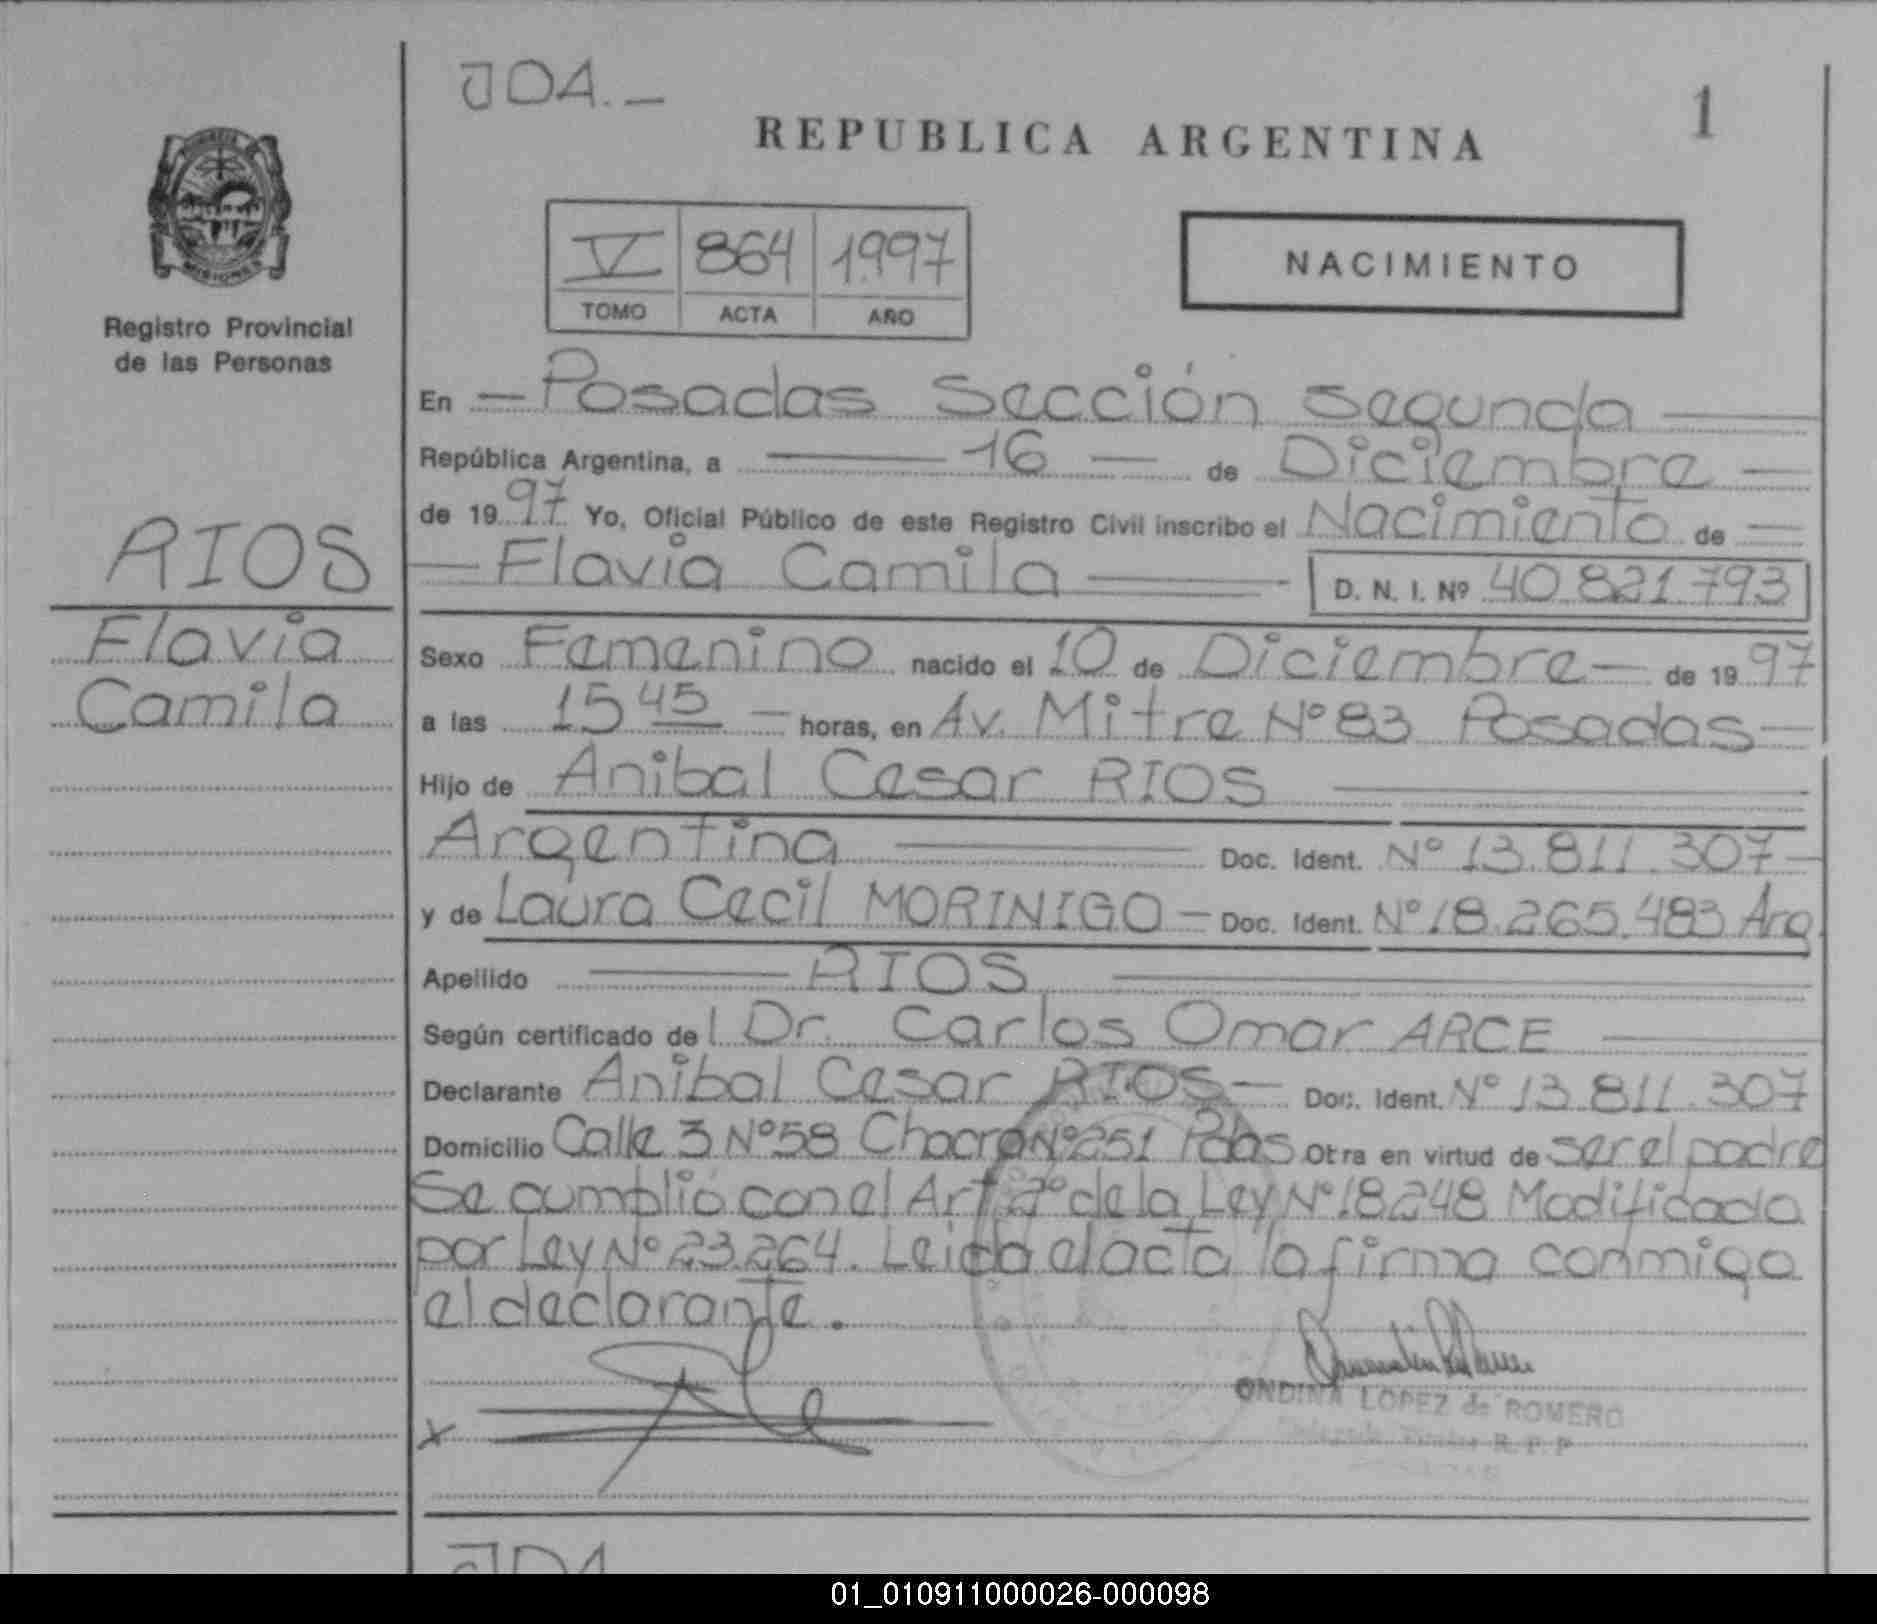 JDA.—
1
REPUBLICA ARGENTINA
MISIONES
Registro Provincial
de las Personas
V 864 1.997
TOMO ACTA AÑO
NACIMIENTO
RIOS
Flavia
Camila
En — Posadas Sección segunda —
República Argentina, a — 16 — de Diciembre —
de 1997 Yo, Oficial Público de este Registro Civil inscribo el Nacimiento de —
— Flavia Camila — D. N. I. Nº 40.821.793
Sexo Femenino nacido el 10 de Diciembre — de 1997
a las 15 45 — horas, en Av. Mitre Nº 83 Posadas —
Hijo de Anibal Cesar RIOS —
Argentina — Doc. Ident. Nº 13.811.307 —
y de Laura Cecil MORINIGO — Doc. Ident. Nº 18.265.483 Arg.
Apellido — RIOS —
Según certificado de l Dr. Carlos Omar ARCE —
Declarante Anibal Cesar RIOS — Doc. Ident. Nº 13.811.307
Domicilio Calle 3 Nº 58 Chacra Nº 251 Pdas Otra en virtud de ser el padre
Se cumplió con el Art 2º de la Ley Nº 18.248 Modificada
por Ley Nº 23.264. Leida el acta la firma conmigo
el declarante.
x
ONDINA LOPEZ de ROMERO
R. P. P
JDA
01_010911000026-000098